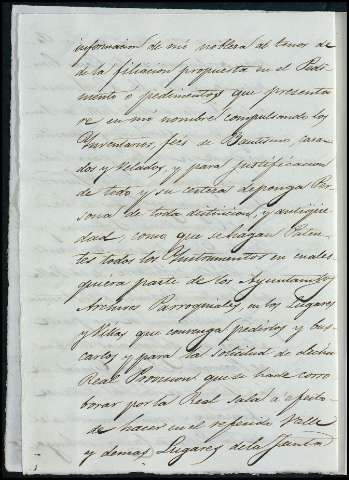 informacion de mi nobleza al tenor de
de la filiacion propuesta en el Pedi
mento o pedimentos que presenta
re en mi nombre compulsando los
Inventarios, fees de Bautismo, casa
dos y Velados, y para justificacion
de todo y su certera deponga Per
sona de toda distincion, y antigüe
dad, como que se hagan Paten
tes todos los Instrumentos en cuales
quiera parte de los Ayuntamitos
Archivos Parroquiales, en los Lugares
y Villas que convenga pedirlos y bus
carlos y para la solicitud de dicha
Real Provision que se ha de corro
borar por la Real Sala a efecto
de hacer en el referido Valle
y demas Lugares de la Junta